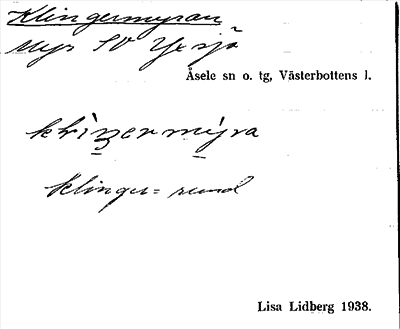 Klingermyran
Myr SV Yxsjö
Åsele sn o. tg, Västerbottens l.
klinger = rund
Lisa Lidberg 1938.